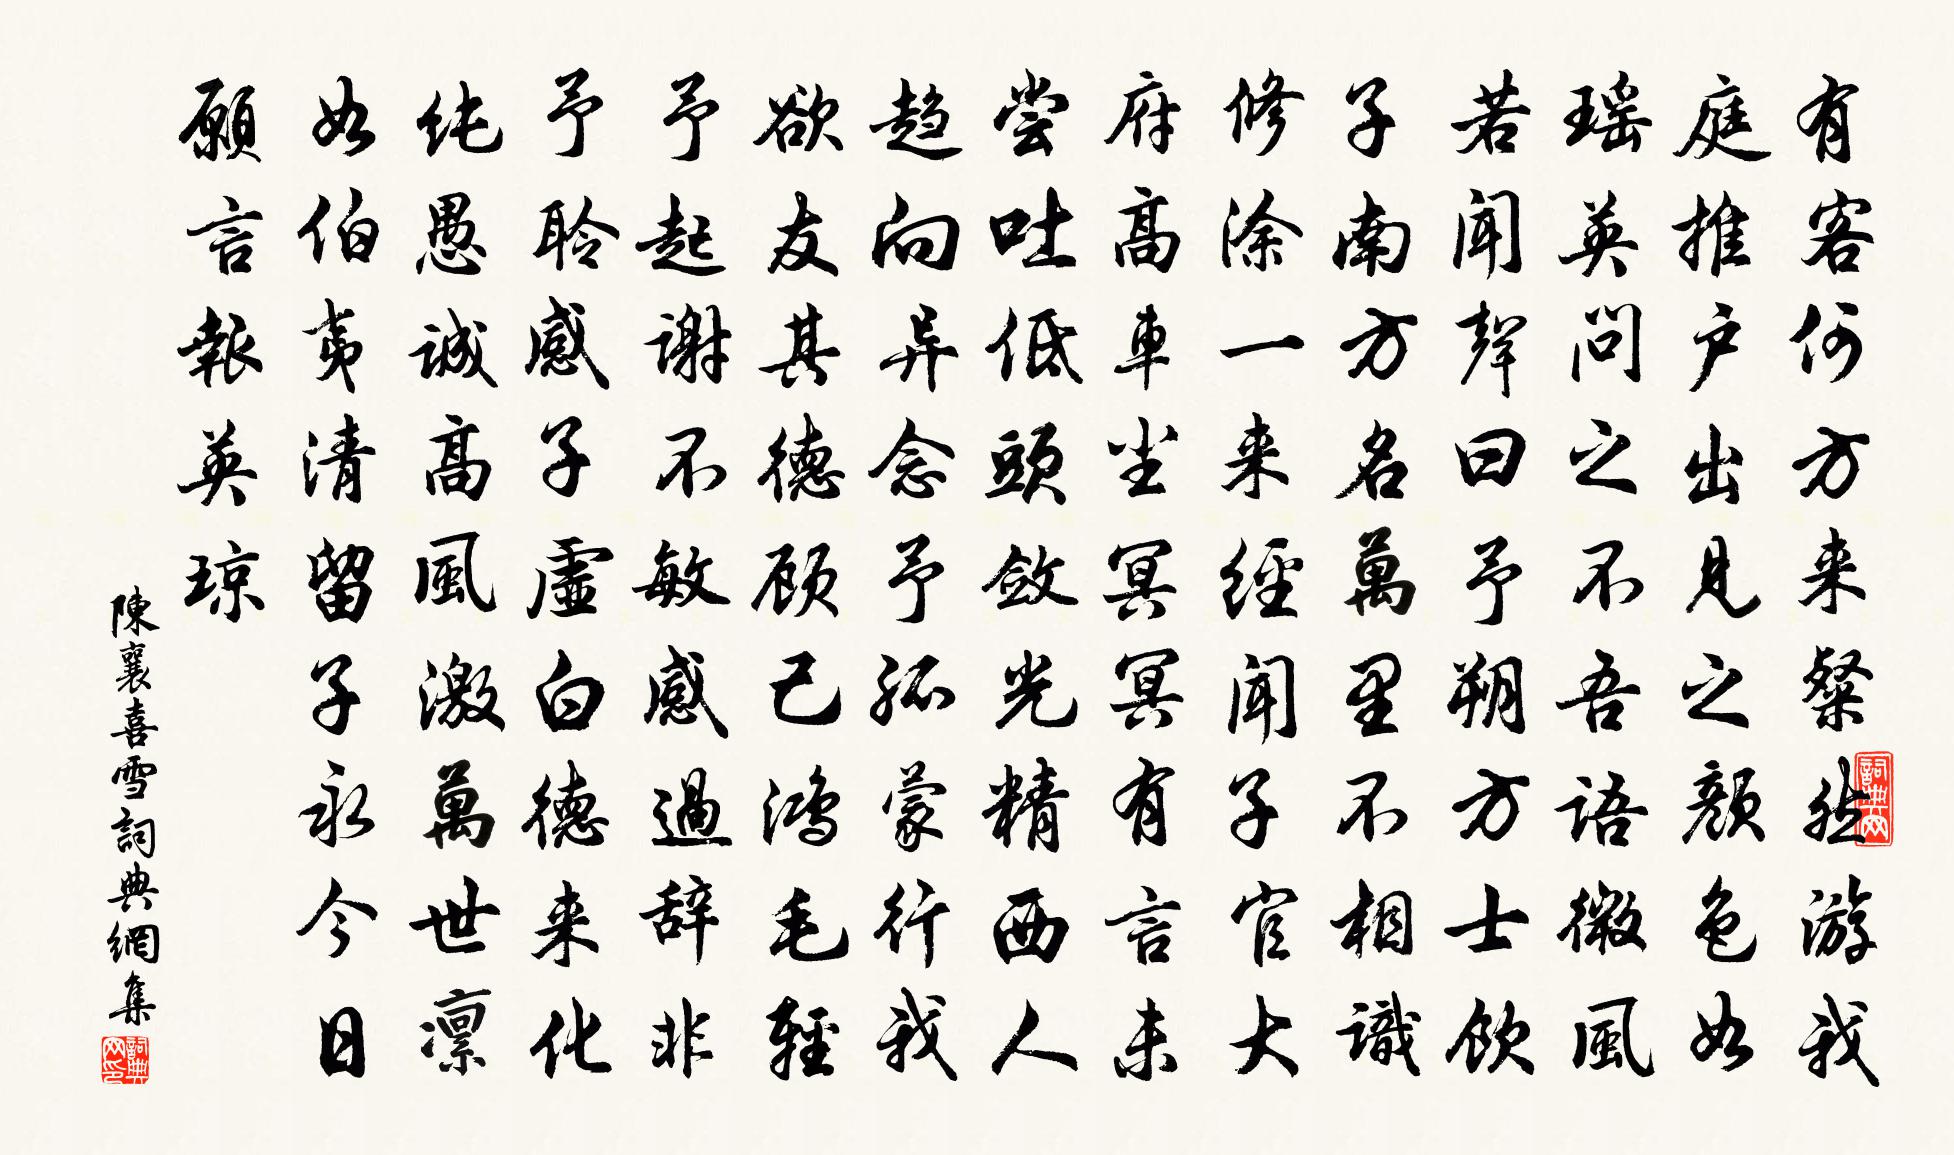 有客何方来粲然游我
庭推户出見之顔色如
瑶英問之不吾語微風
若闻聲曰予朔方士飲
子南方名萬里不相識
修途一来經闻子官大
府高車坐冥冥有言未
尝吐低頭斂光精西人
趋向异念予孤蒙行我
欲友其德顾己鸿毛輕
予起謝不敏感過辞非
予聆感子虚白德来化
纯愚誠高風激萬世凛
如伯夷清留子永今日
願言報英琼
陳襄喜雪詞典網集
詞典网
詞典网印